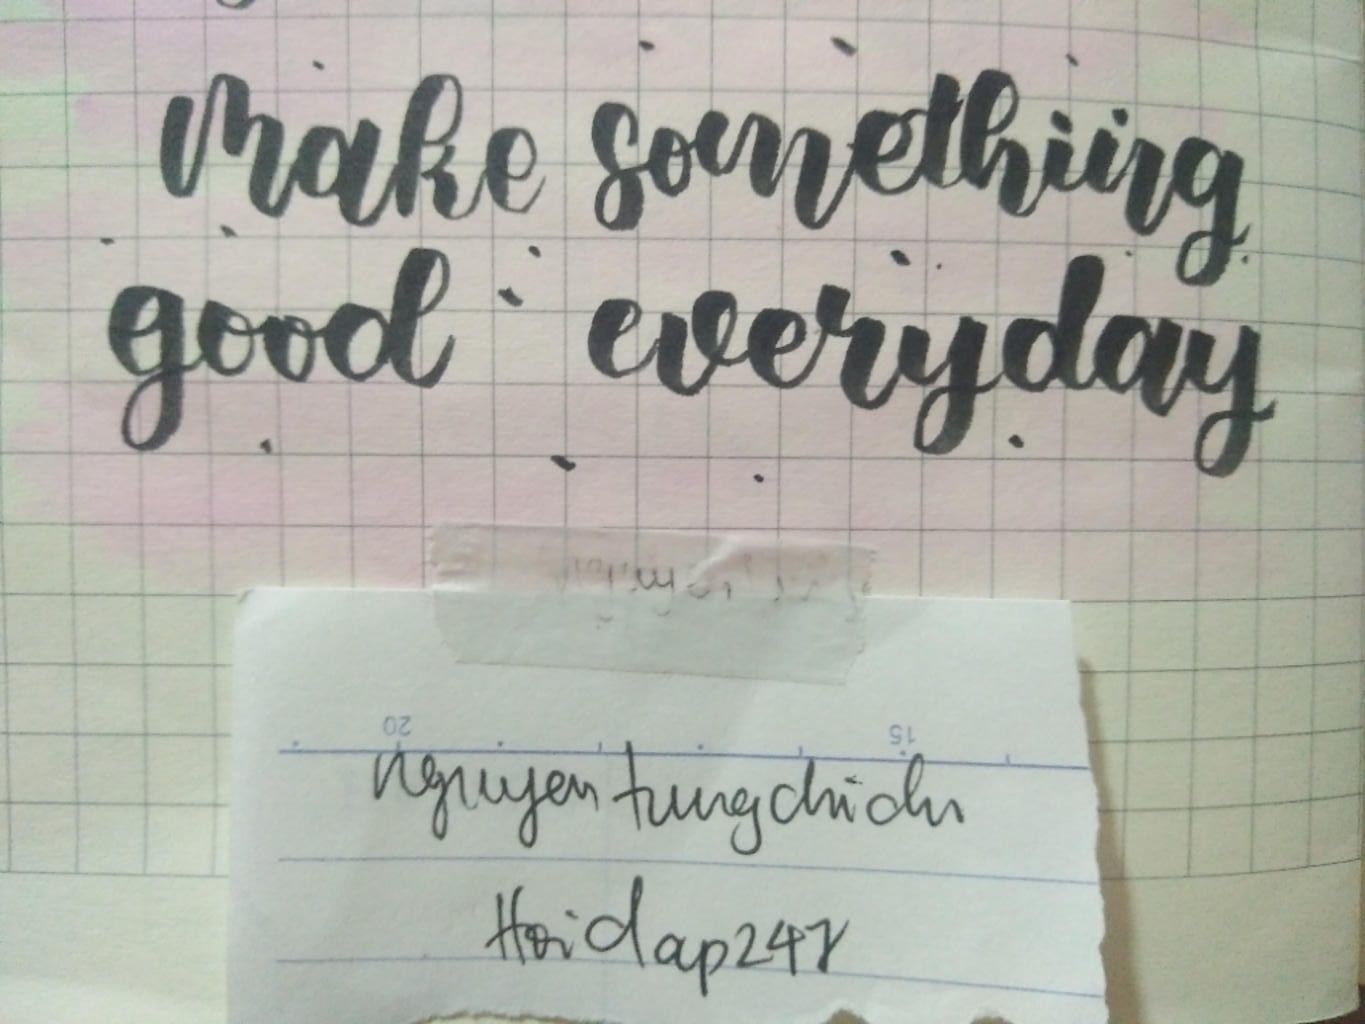 make something
good everyday
20 15
nguyen tungchichi
Hoidap247